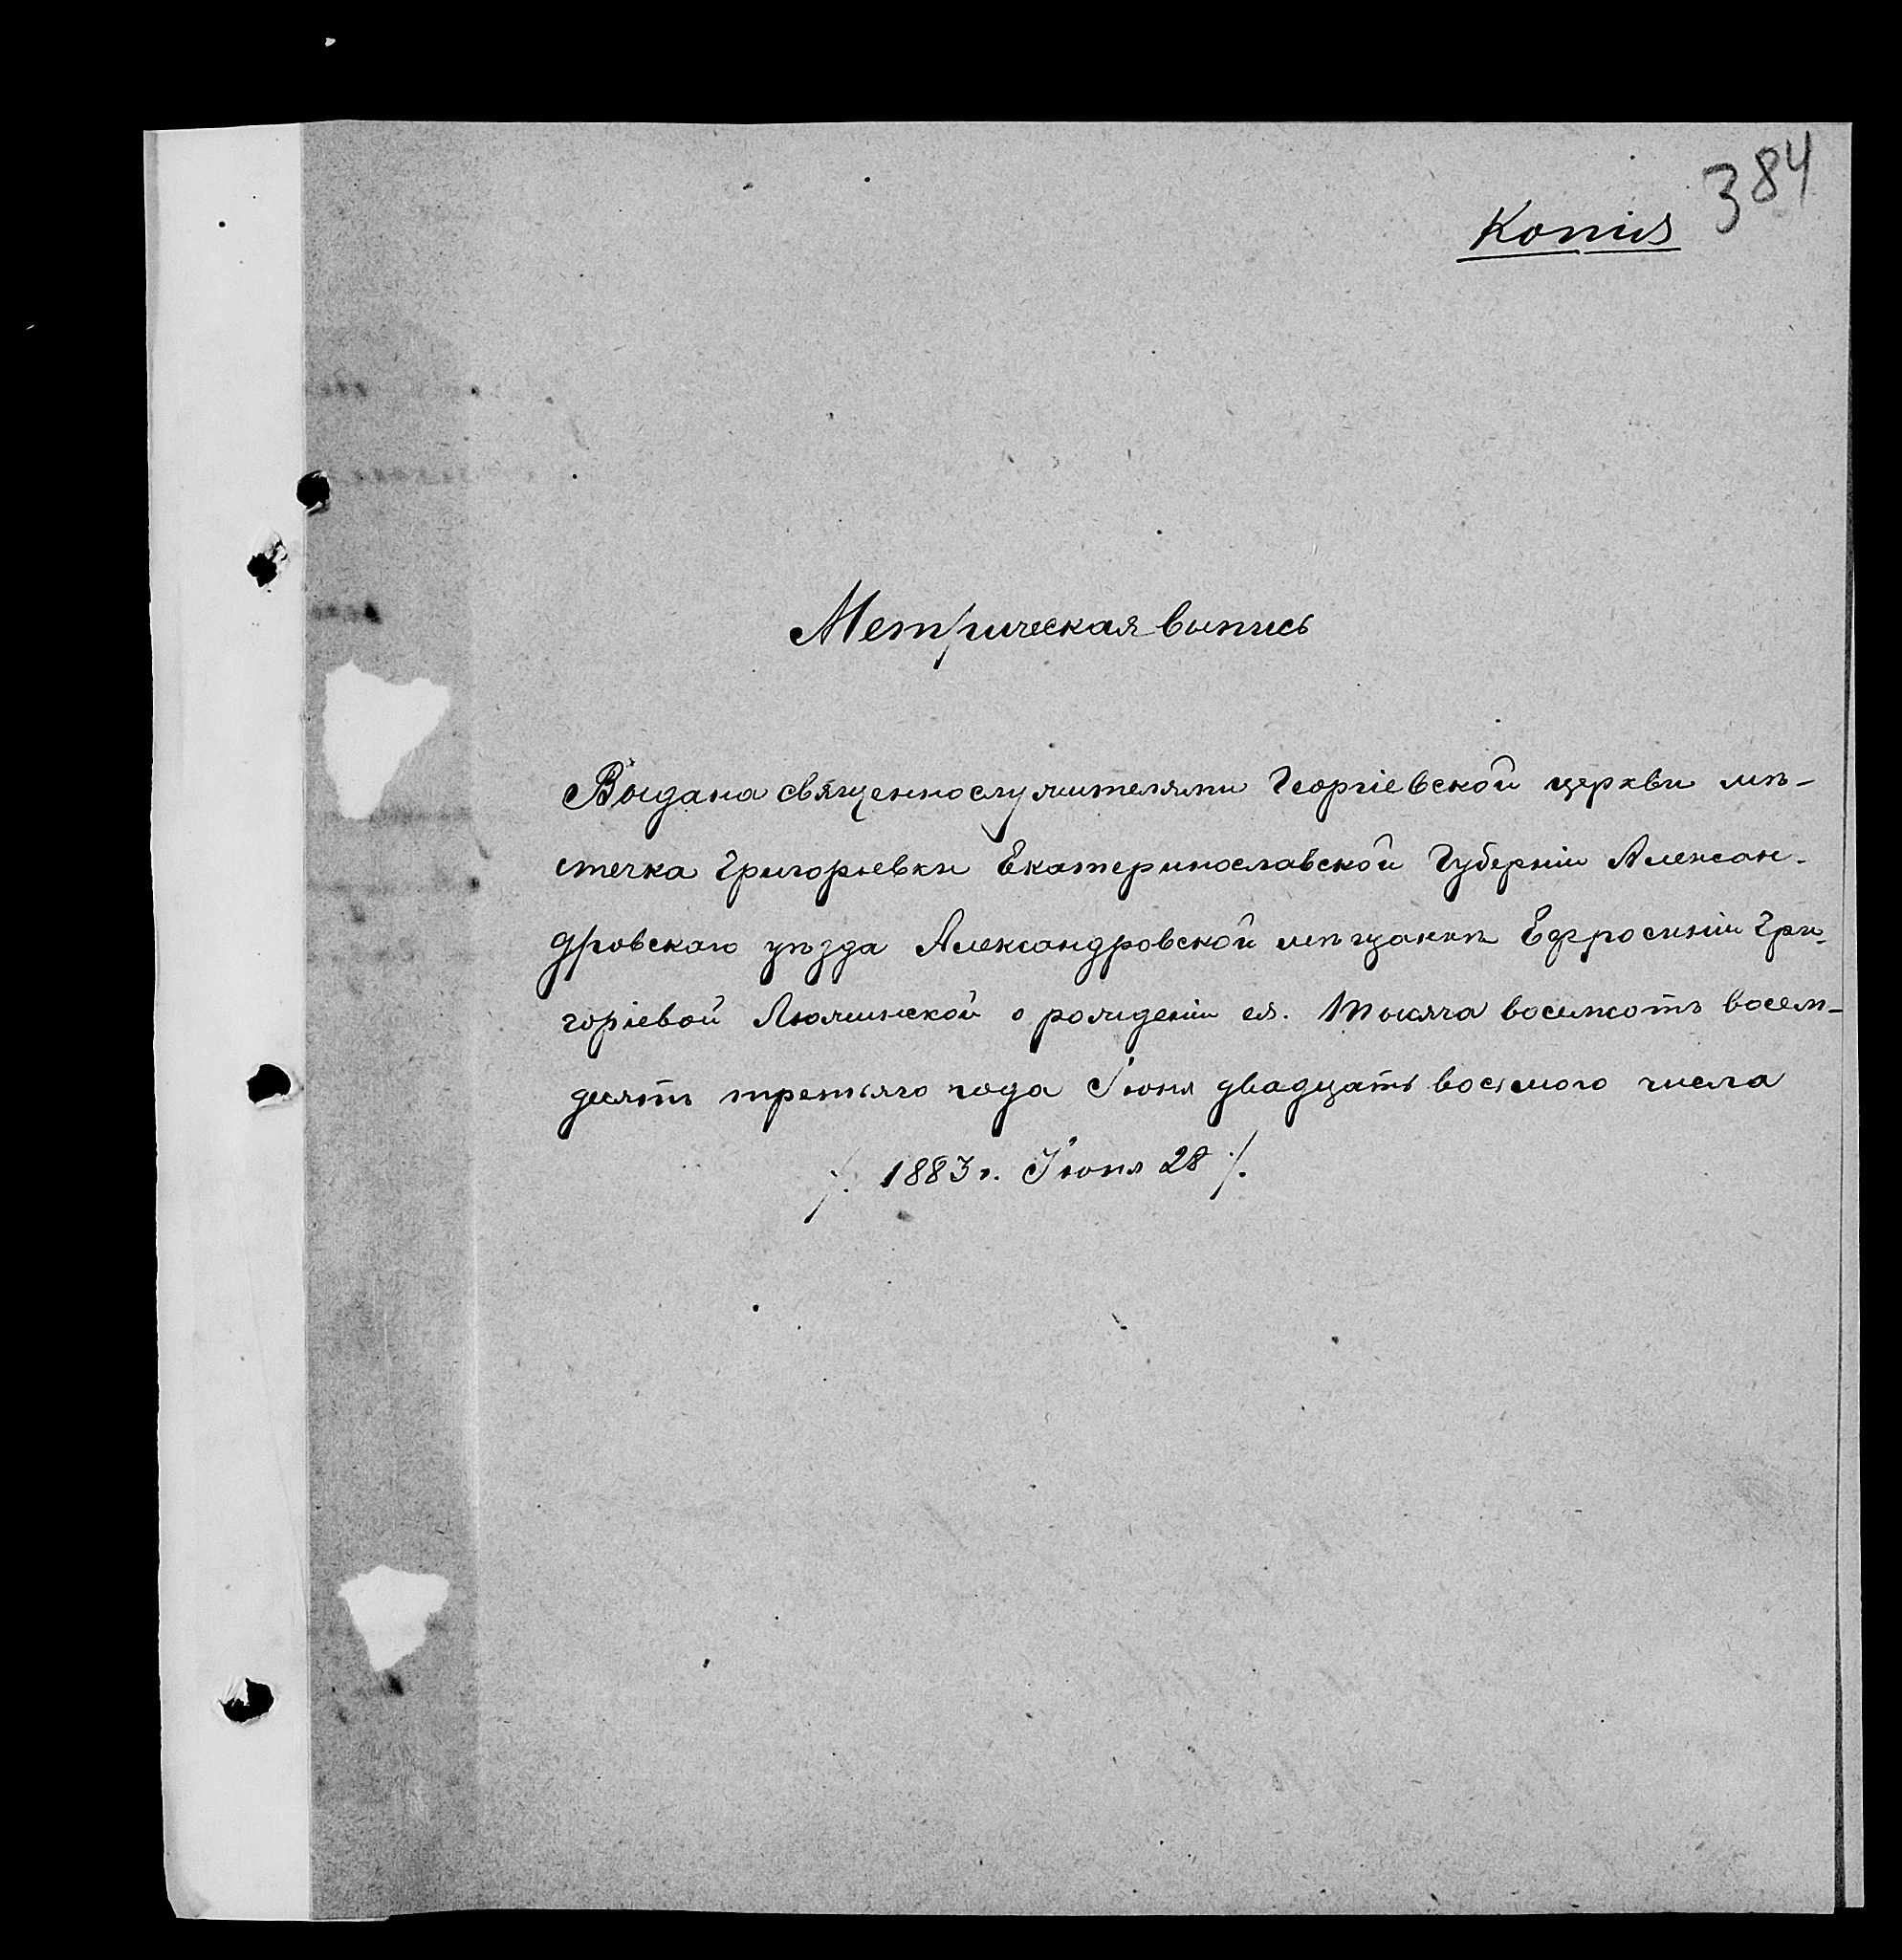 384
Копія
Метрическая выпись
Выдана священнослужителями Георгіевской церкви мѣ-
стечка Григорьевки Екатеринославской Губерніи Алексан-
дровскаго уѣзда Александровской мѣщанкѣ Ефросиніи Гри-
горіевой о рожденіи ея. Тысяча восемьсотъ восем-
десятъ третьяго года Іюня двадцать восьмого числа
/. 1883 г. Іюня 28 /.